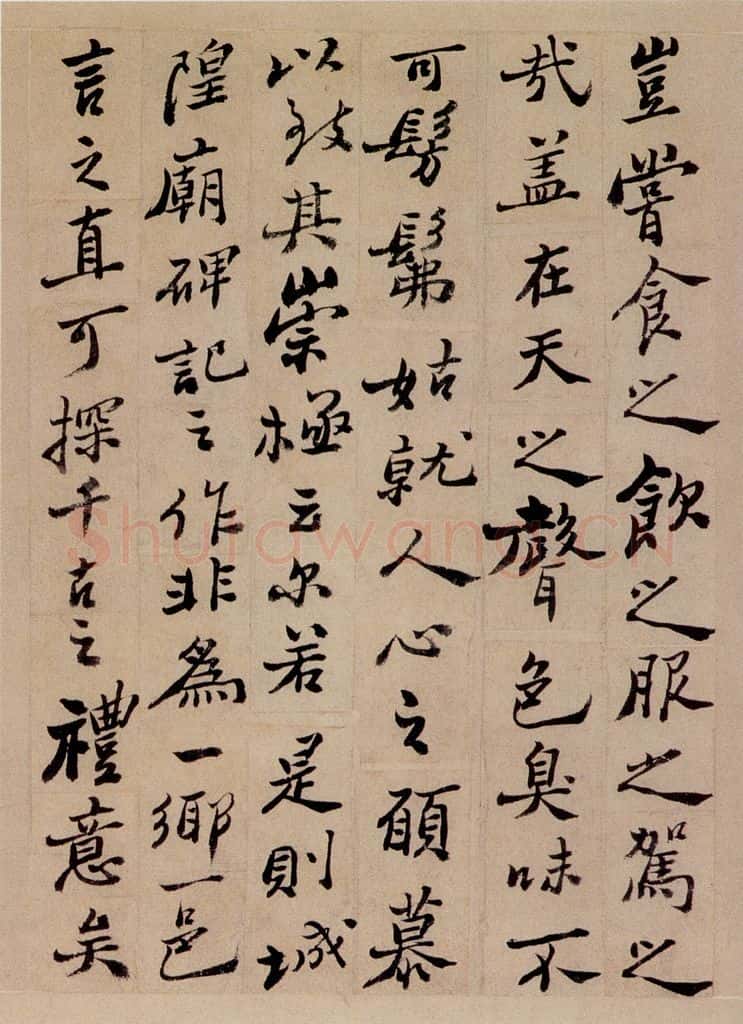 豈嘗食之飲之服之駕之
哉盖在天之聲色臭味不
可髣髴姑就人心之頋慕
以致其崇極云尓若是則城
隍廟碑記之作非為一鄉一邑
言之直可探千古之禮意矣
Shufawang.CN